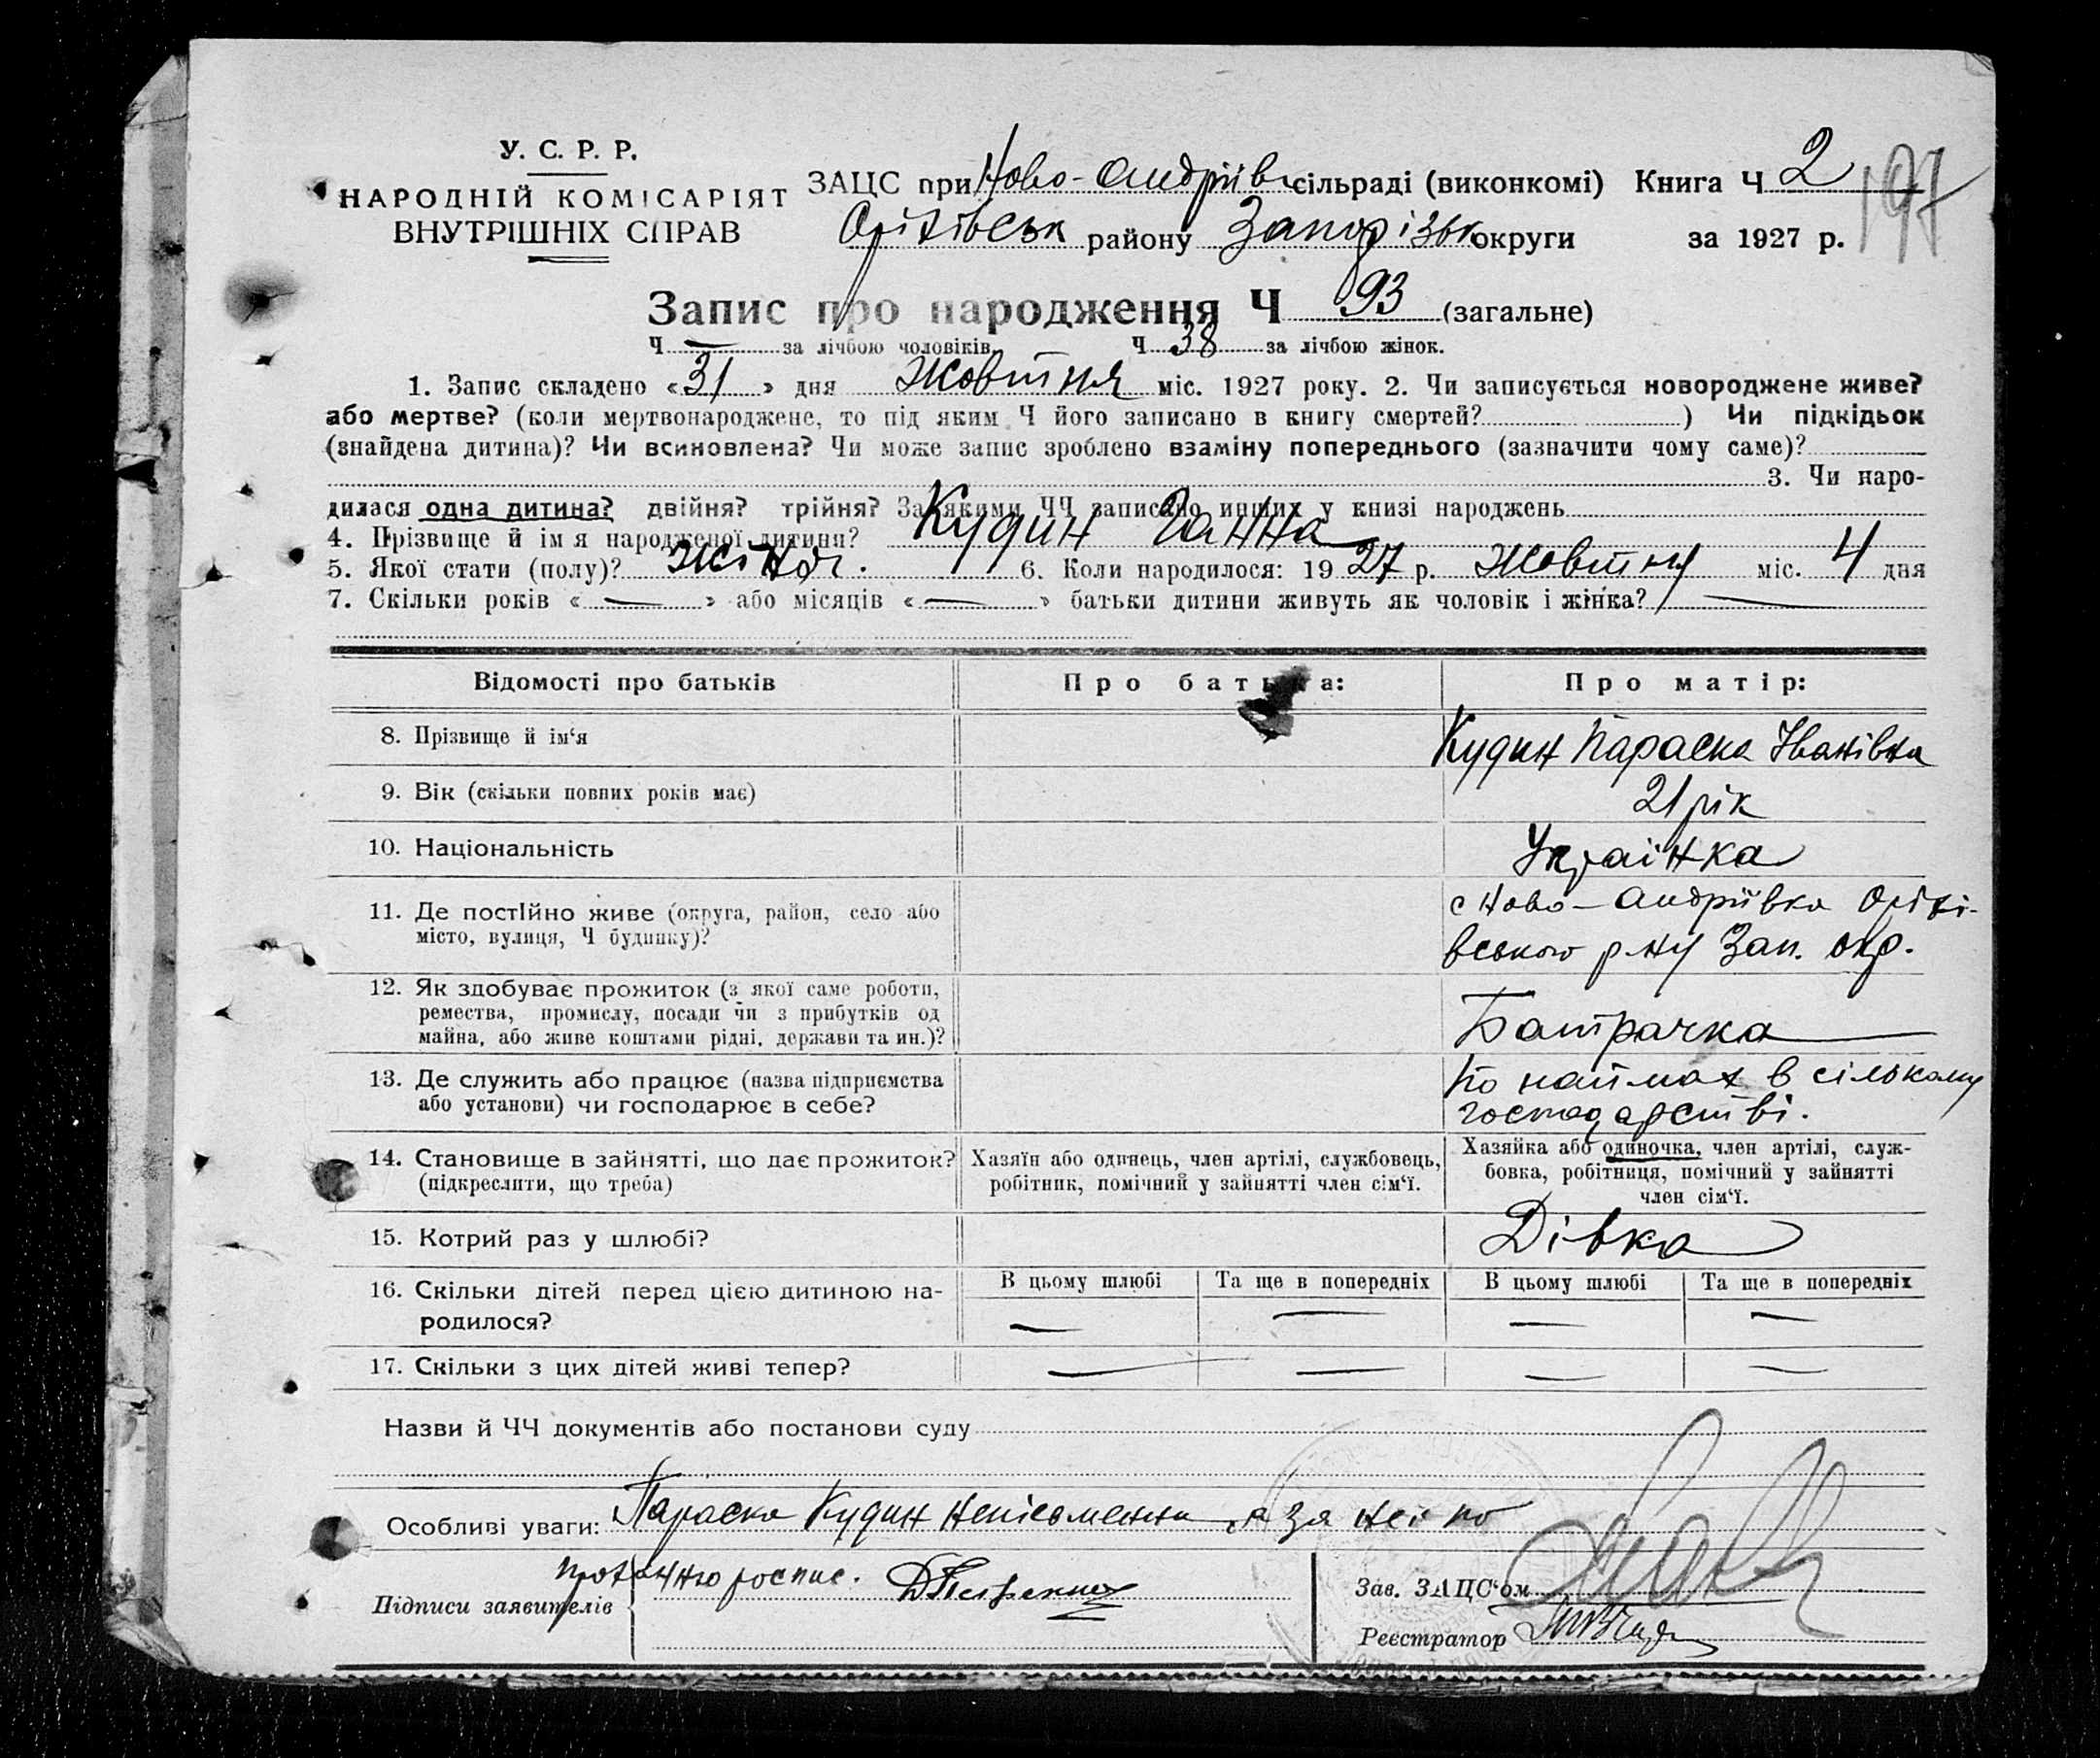 У. С. Р. Р.
НАРОДНІЙ КОМІСАРІЯТ
ВНУТРІШНІХ СПРАВ
ЗАЦС при Ново-Андріїв сільраді (виконкомі) Книга Ч 2
197
Оріхівськ району Запорізьк округи за 1927 р.
Запис про народження Ч 93 (загальне)
Ч — за лічбою чоловіків Ч 38 за лічбою жінок.
1. Запис складено «31» дня Жовтня міс. 1927 року. 2. Чи записується новороджене живе?
або мертве? (коли мертвонароджене, то під яким Ч його записано в книгу смертей? ) Чи підкідьок
(знайдена дитина)? Чи всиновлена? Чи може запис зроблено взаміну попереднього (зазначити чому саме)?
3. Чи наро-
дилася одна дитина? двійня? трійня? За якими ЧЧ записано инших у книзі народжень
4. Прізвище й ім я народженої дитини? Кудин Ганна
5. Якої стати (полу)? Жіноч. 6. Коли народилося: 1927 р. Жовтня міс. 4 дня
7. Скільки років « — » або місяців « — » батьки дитини живуть як чоловік і жінка? —
Відомості про батьків Про батька: Про матір:
8. Прізвище й ім‘я Кудин Параска Іванівна
9. Вік (скільки повних років має) 21 рік
10. Національність Українка
11. Де постійно живе (округа, район, село або
місто, вулиця, Ч будинку)?
с Ново-Андріївка Оріхі-
вського р-ну Зап. окр.
12. Як здобуває прожиток (з якої саме роботи,
ремества, промислу, посади чи з прибутків од
майна, або живе коштами рідні, держави та ин.)?
Батрачка
13. Де служить або працює (назва підприємства
або установи) чи господарює в себе?
по наймах в сількому
господарстві.
14. Становище в зайнятті, що дає прожиток?
(підкреслити, що треба)
Хазяїн або одинець, член артілі, службовець,
робітник, помічний у зайнятті член сім‘ї.
Хазяйка або одиночка, член артілі, служ-
бовка, робітниця, помічний у зайнятті
член сім‘ї.
15. Котрий раз у шлюбі? Дівка
16. Скільки дітей перед цією дитиною на-
родилося?
В цьому шлюбі Та ще в попередніх В цьому шлюбі Та ще в попередніх
— — — —
17. Скільки з цих дітей живі тепер? — — — —
Назви й ЧЧ документів або постанови суду
Особливі уваги: Параска Кудин неписьменна, а за неї по
проханню роспис.
Підписи заявителів
Зав. ЗАЦС‘ом
Реєстратор